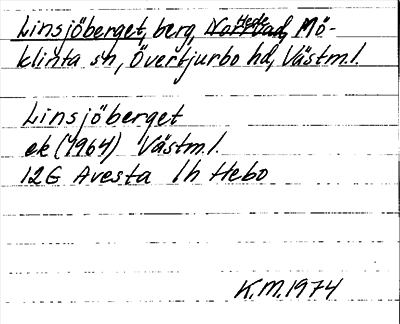 Linsjöberget, berg, Hede, Mö-
klinta sn, Övertjurbo hd, Västml.
Linsjöberget
ek (1964) Västml.
12G Avesta 1h Hebo
K.M. 1974